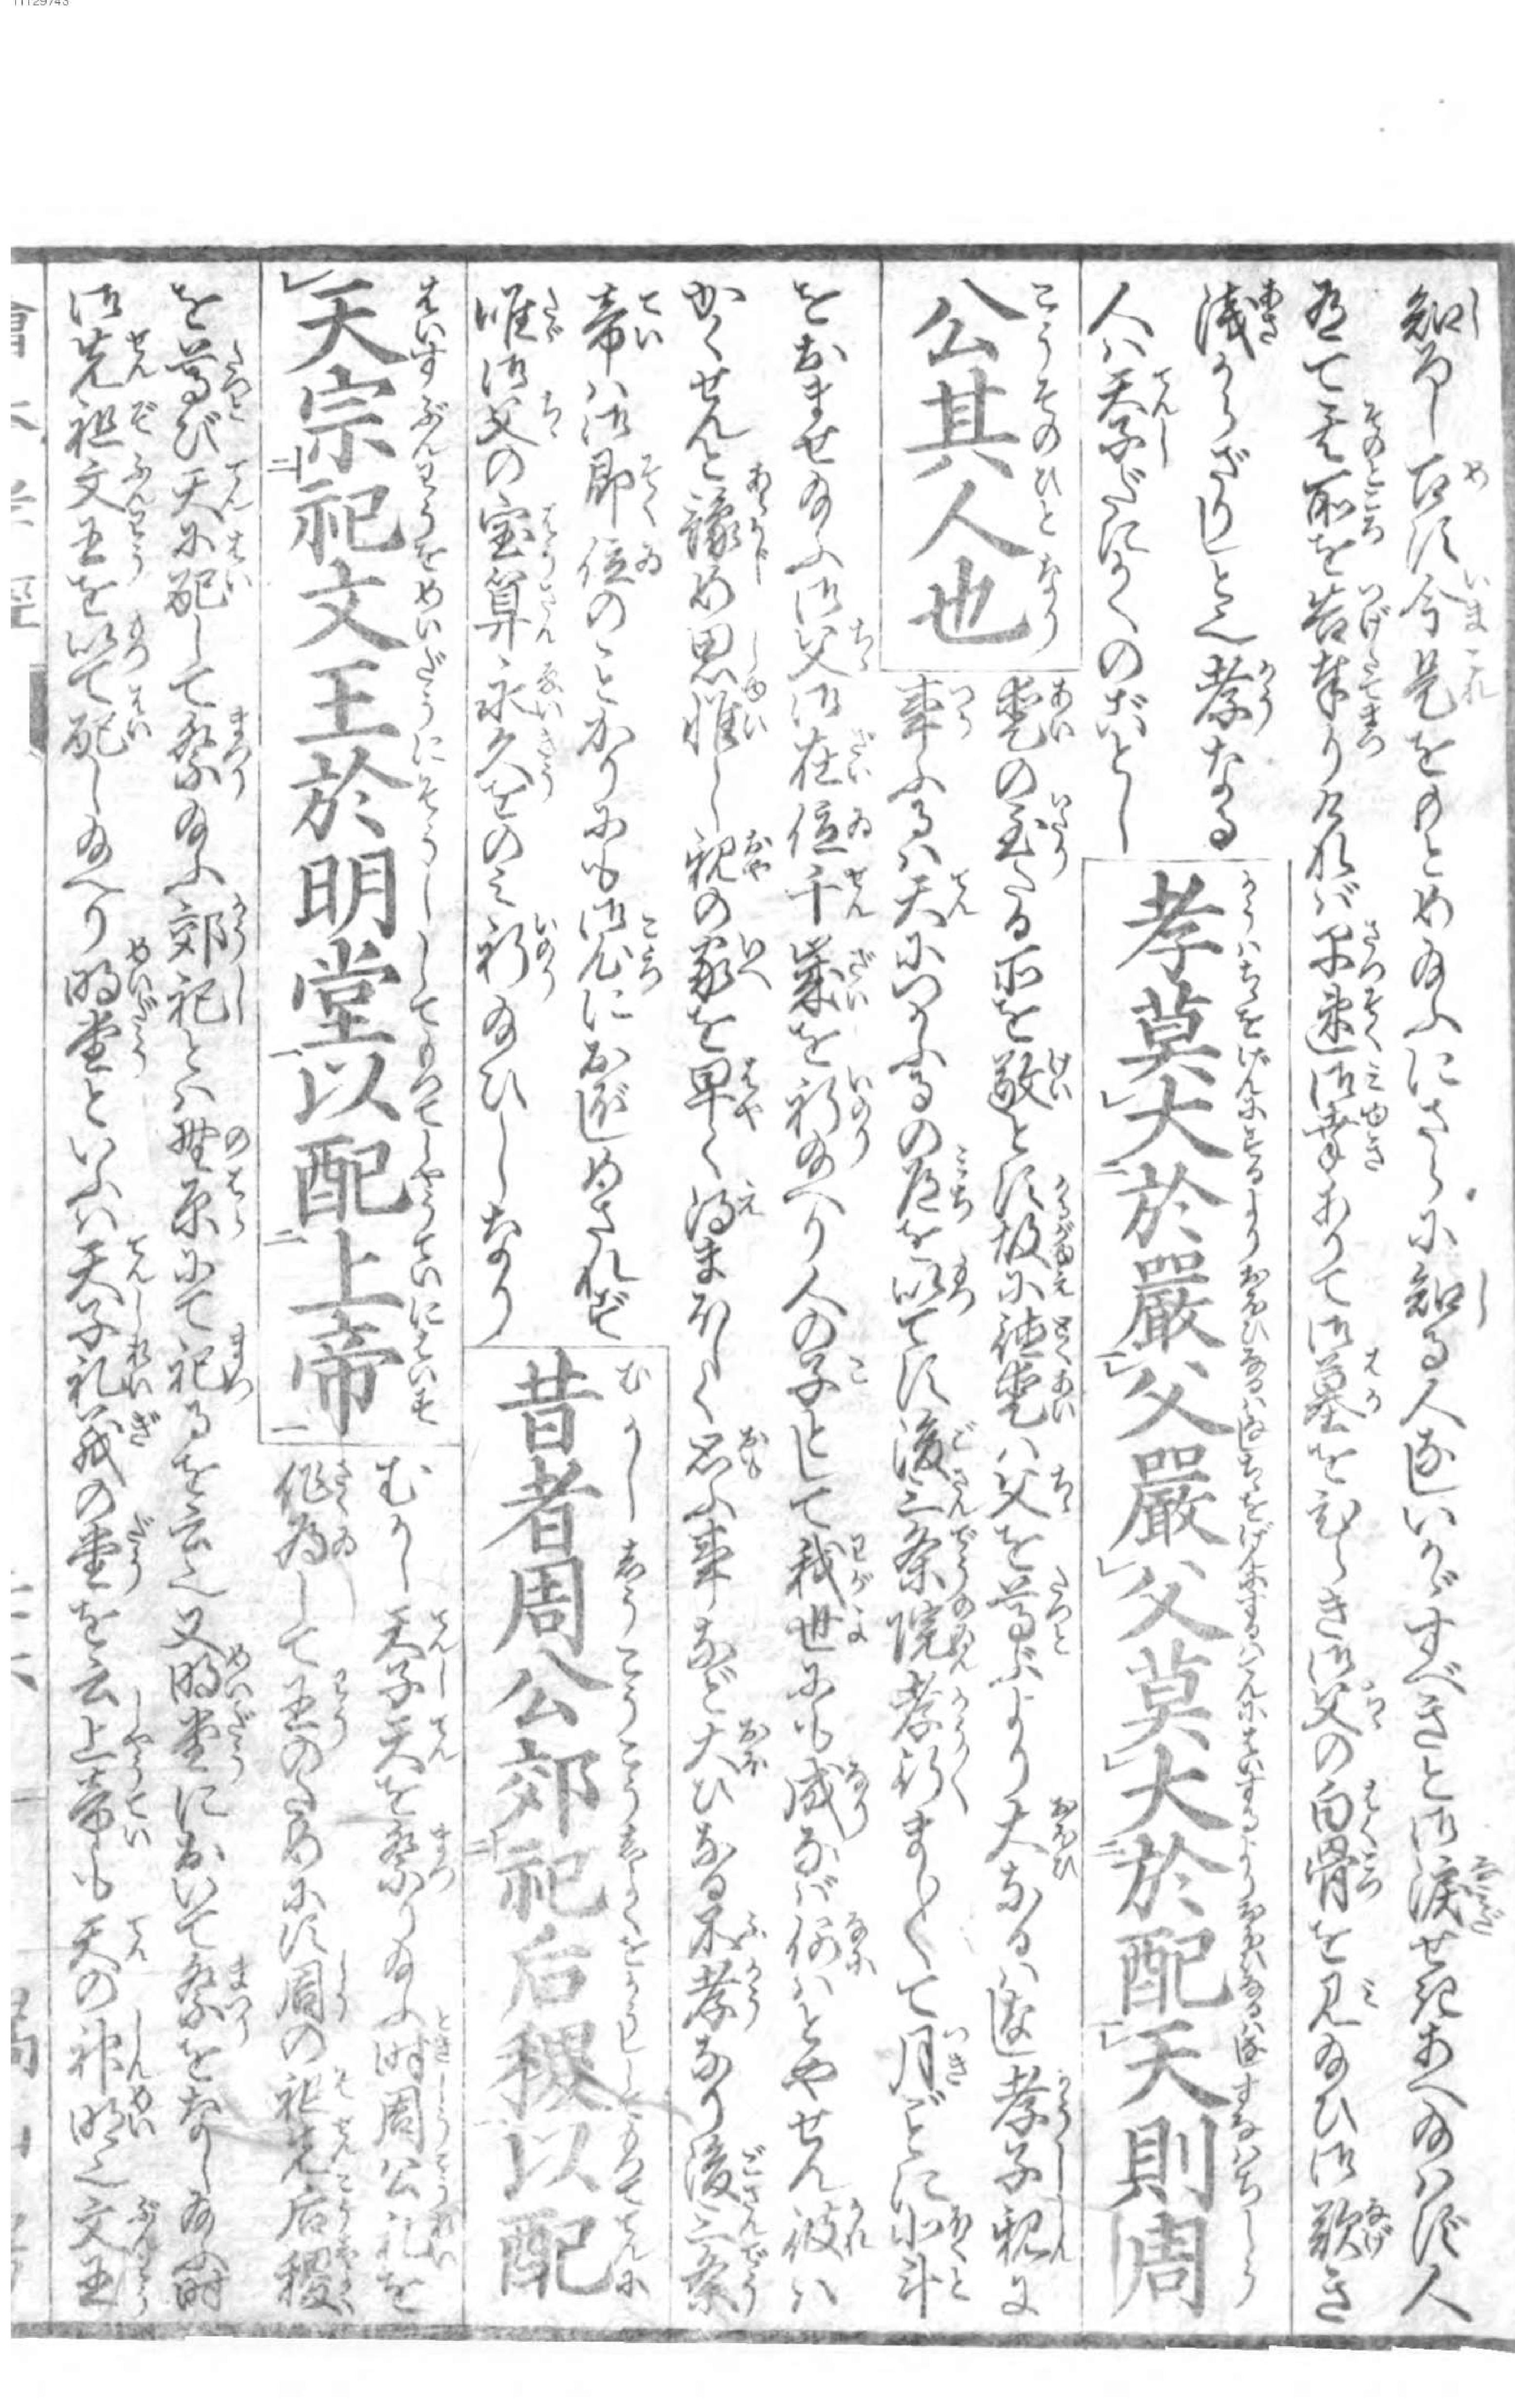 知召し召ず今是をもとめ給ふにさらに知る人なしいかゞすべきと御涙せきあへ給はず人
有て其所を告奉りけれバ早速御幸ありて御墓をひらき御父の白骨を見給ひ御歎き
浅からざりしとぞ孝なる
人ハ天子だにかくのごとし
孝莫大於嚴父嚴父莫大於配天則周
公其人也
愛の至たる所を敬とす故に徳愛ハ父を尊ぶより大なるハ無孝子親に
事ふるハ天につかふるの道を以てす後三条院孝行まし〳〵て月ごとに北斗
をおませ給ふ御父御在位千歳を祈給へり人の子として我世にも成なバ何ハとやせん彼ハ
かくせんと豫め思惟し親の家を早く得まほしく思ふ事など大ひなる不孝なり後三条
帝ハ御即位のことかりにも御心におぼしめされず
唯御父の宝算永久をのミ祈給ひしなり
昔者周公郊祀后稷以配
天宗祀文王於明堂以配上帝
むかし天子天を祭り給ふ時周公礼を
作為して王のために周の祖先后稷
を尊び天に配して祭給ふ郊祀とハ野原にて祀るを云又明堂に於いて祭をなし給ふ時
御先祖文王を以て配し給へり明堂といふハ天子礼義の堂を云上帝も天の神明也文王